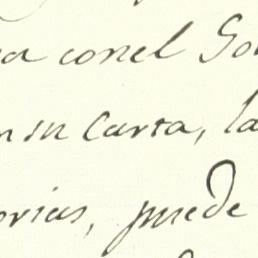 a conel So
n su Carta, la
orias, puede